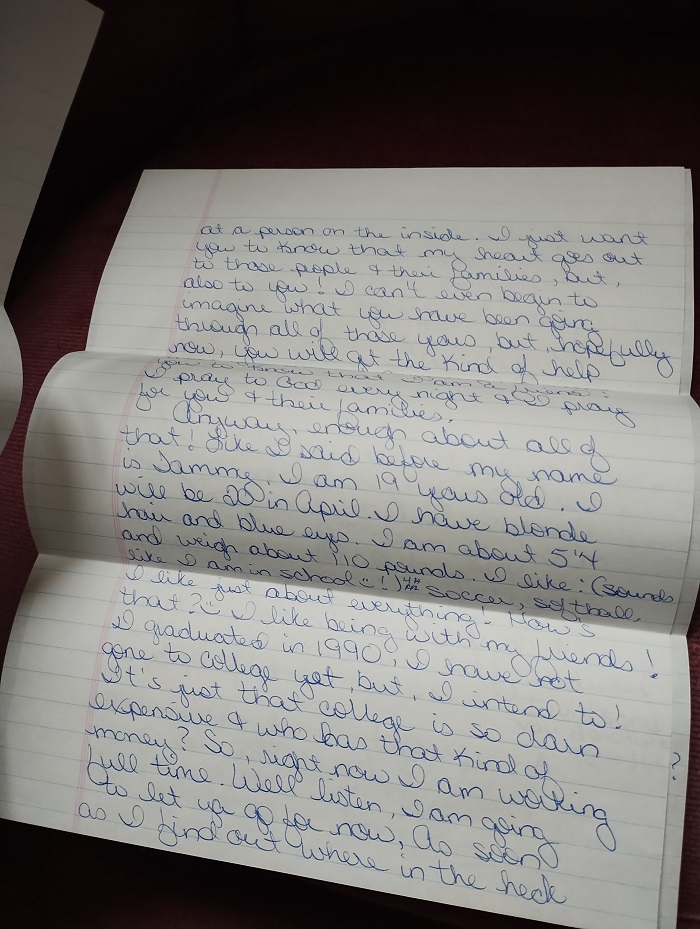 at a person on the inside. I just want
you to know that my heart goes out
to those people & their families, but,
also to you! I can't even begin to
imagine what you have been going
through all of those years, but, hopefully
now, you will get the kind of help
you to know that I am a
I pray to God every night & I pray
for you & their families.
Anyway, enough about all of
that! Like I said before my name
is Tammy, I am 19 years old. I
will be 20 in April. I have blonde
hair and blue eyes. I am about 5'4
and weigh about 110 pounds. I like: (sounds
like I am in school !) soccer, softball,
I like just about everything! How's
that? I like being with my friends!
I graduated in 1990, I have not
gone to college yet, but, I intend to!
It's just that college is so darn
expensive & who has that kind of
money? So, right now I am working
full time. Well listen, I am going
to let ya go for now, As soon
as I find out where in the heck
?